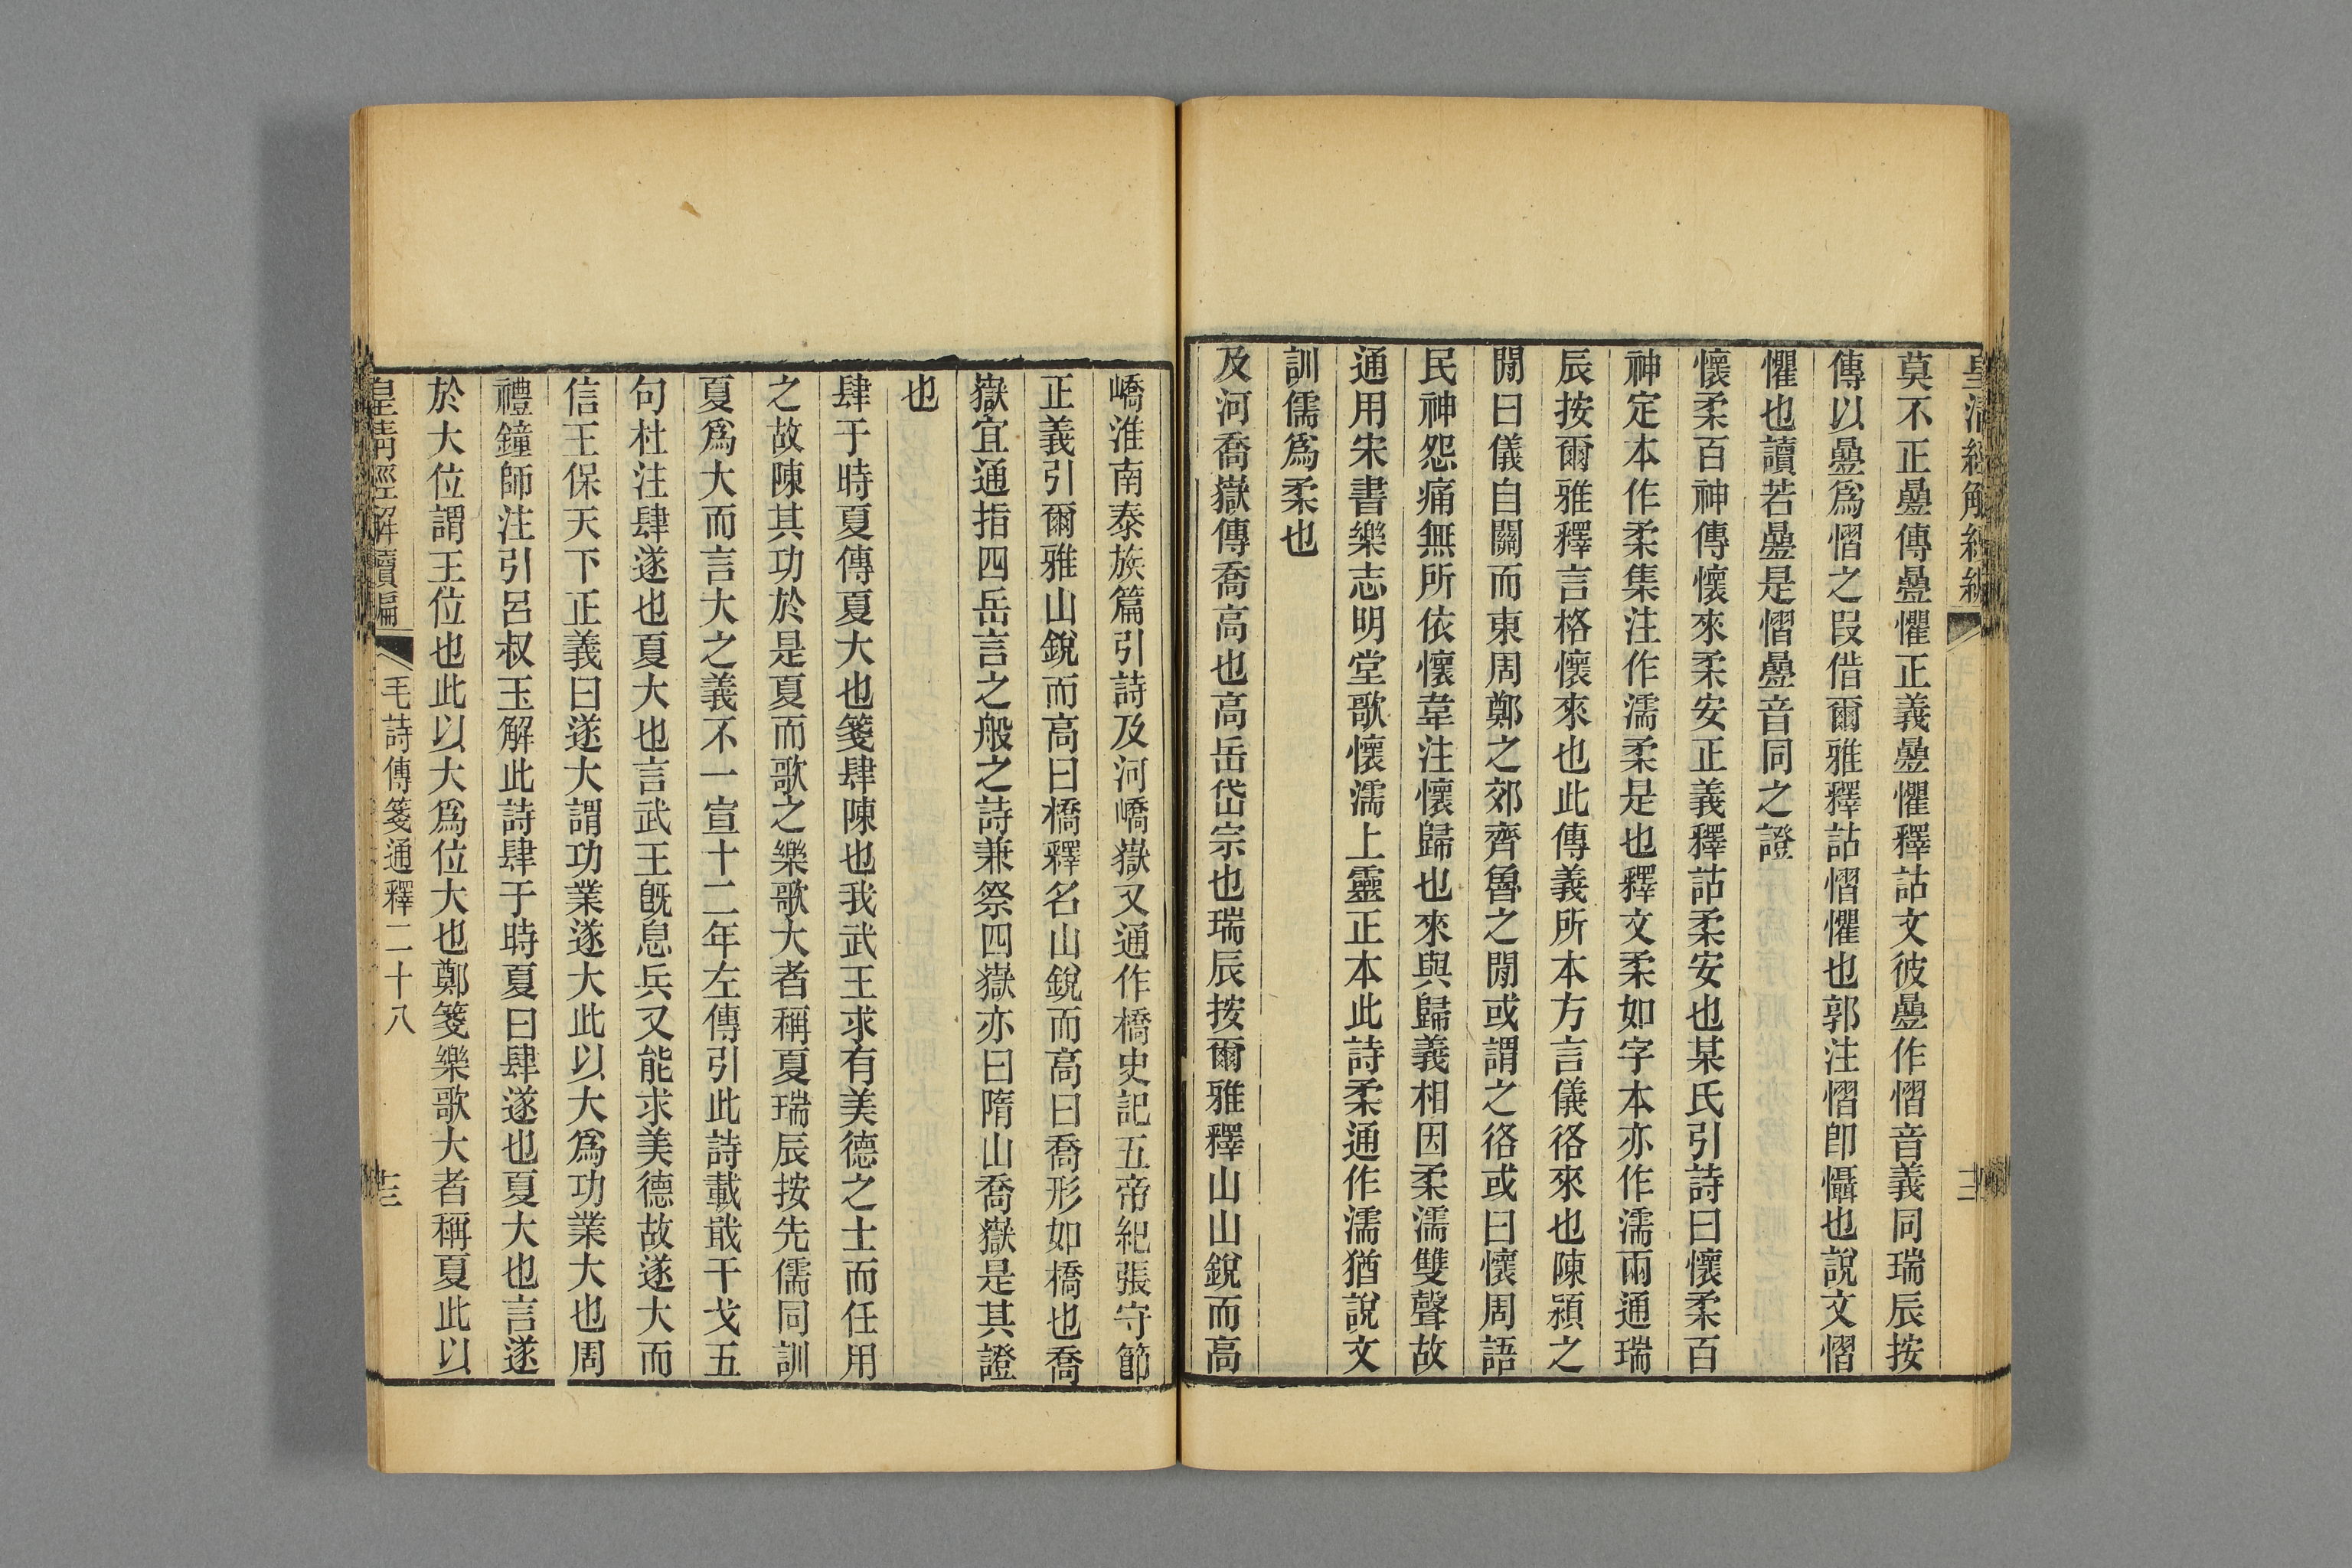 莫不正疊傳疊懼正義疊懼釋詁文彼疊作慴音義同瑞辰按
傳以疊爲慴之叚借爾雅釋詁慴懼也郭注慴卽懾也說文慴
懼也讀若疊是慴疊音同之證
懷柔百神傳懷來柔安正義釋詁柔安也某氏引詩曰懷柔百
神定本作柔集注作濡柔是也釋文柔如字本亦作濡兩通瑞
辰按爾雅釋言格懷來也此傳義所本方言儀佫來也陳潁之
閒曰儀自關而東周鄭之郊齊魯之閒或謂之佫或曰懷周語
民神怨痛無所依懷韋注懷歸也來與歸義相因柔濡雙聲故
通用宋書樂志明堂歌懷濡上靈正本此詩柔通作濡猶說文
訓儒爲柔也
及河喬嶽傳喬高也高岳岱宗也瑞辰按爾雅釋山山銳而高
嶠淮南泰族篇引詩及河嶠嶽又通作橋史記五帝紀張守節
正義引爾雅山銳而高曰橋釋名山銳而高曰喬形如橋也喬
嶽宜通指四岳言之般之詩兼祭四嶽亦曰隋山喬嶽是其證
也
肆于時夏傳夏大也箋肆陳也我武王求有美德之士而任用
之故陳其功於是夏而歌之樂歌大者稱夏瑞辰按先儒同訓
夏爲大而言大之義不一宣十二年左傳引此詩載戢干戈五
句杜注肆遂也夏大也言武王旣息兵又能求美德故遂大而
信王保天下正義曰遂大謂功業遂大此以大爲功業大也周
禮鐘師注引呂叔玉解此詩肆于時夏曰肆遂也夏大也言遂
於大位謂王位也此以大爲位大也鄭箋樂歌大者稱夏此以
皇清經解續編 毛詩傳箋通釋二十八 十三